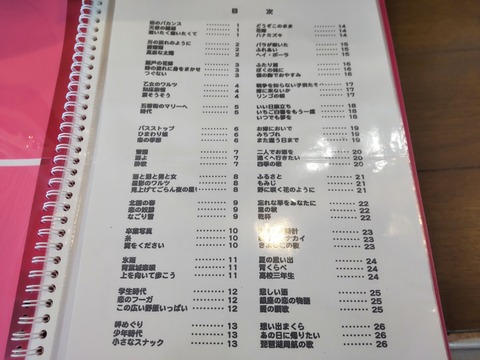 目 次
恋のバカンス 1
天使の誘惑 1
逢いたくて逢いたくて 1
川の流れのように 2
2
真赤な太陽 2
瀬戸の花嫁 3
時の流れに身をまかせ 3
つぐない 3
乙女のワルツ 4
知床旅情 4
涙そうそう 4
五番街のマリーへ 5
時代 5
バスストップ 6
ひまわり娘 6
恋の季節 6
雪國 7
酒よ 7
舟歌 7
酒と泪と男と女 8
星影のワルツ 8
見上げてごらん夜の星! 8
北国の春 9
恋の奴隷 9
なごり雪 9
卒業写真 10
糸 10
翼をください 10
氷雨 11
青葉城恋唄 11
上を向いて歩こう 11
学生時代 12
恋のフーガ 12
この広い野原いっぱい 12
岬めぐり 13
少年時代 13
小さなスナック 13
どうぞこのまま 14
花嫁 14
ハナミズキ 14
バラが咲いた 15
ふれあい 15
ヘイ・ポーラ 15
ふたり酒 16
ぼくの妹に 16
僕の胸でおやすみ 16
戦争を知らない子供た 17
雨に 17
リンゴの唄 17
いい日旅立ち 18
いちご白書をもう一度 18
いつでも夢を 18
お嫁においで 19
みちづれ 19
また逢う日まで 19
二人でお酒を 20
遠くへ行きたい 20
四季の歌 20
ふるさと 21
もみじ 21
野に咲く花のように 21
忘れな草をあなたに 22
里の秋 22
乾杯 22
時計 23
ナカイ 23
の歌 23
夏の思い出 24
背くらべ 24
高校三年生 24
悲しい酒 25
銀座の恋の物語 25
雪の降街を 25
想い出まくら 26
あの日に帰りたい 26
琵琶湖周航の歌 26